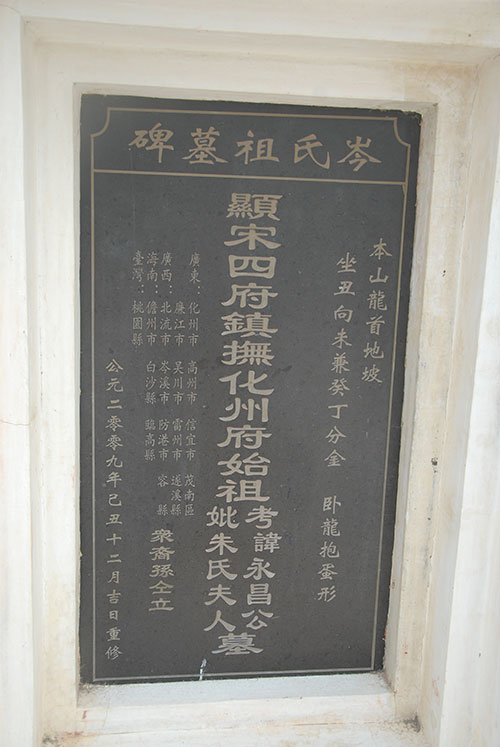 岑氏祖墓碑
本山龍首地坡
坐丑向未兼癸丁分金 卧龍抱蛋形
顯宋四府鎮撫化州府始祖考諱永昌公妣朱氏夫人墓
廣東：化州市 高州市 信宜市 茂南區
廉江市 吴川市 雷州市 遂溪縣
廣西：北流市 岑溪市 防港市 容縣
海南：儋州市 白沙縣 臨高縣
臺灣：桃園縣
衆裔孫仝立
公元二零零九年己丑十二月吉日重修